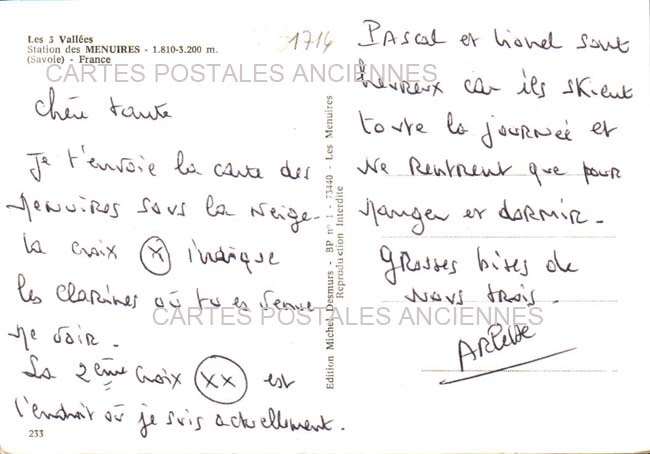 Les 3 Vallées
Station des MENUIRES - 1.810-3.200 m.
(Savoie) - France
1714
CARTES POSTALES ANCIENNES
Chère tante
Je t'envoie la carte des
Menuires sous la neige.
La croix (X) indique
les clarines où tu es venue
me voir.
CARTES POSTALES ANCIENNES
La 2ème croix (XX) est
l'endroit où je suis actuellement.
233
Edition Michel Desmurs - BP n° 1 - 73440 - Les Menuires
Reproduction Interdite
Pascal et Lionel sont
heureux car ils skient
toute la journée et
ne rentrent que pour
manger et dormir.
Grosses bises de
nous trois.
Arlette